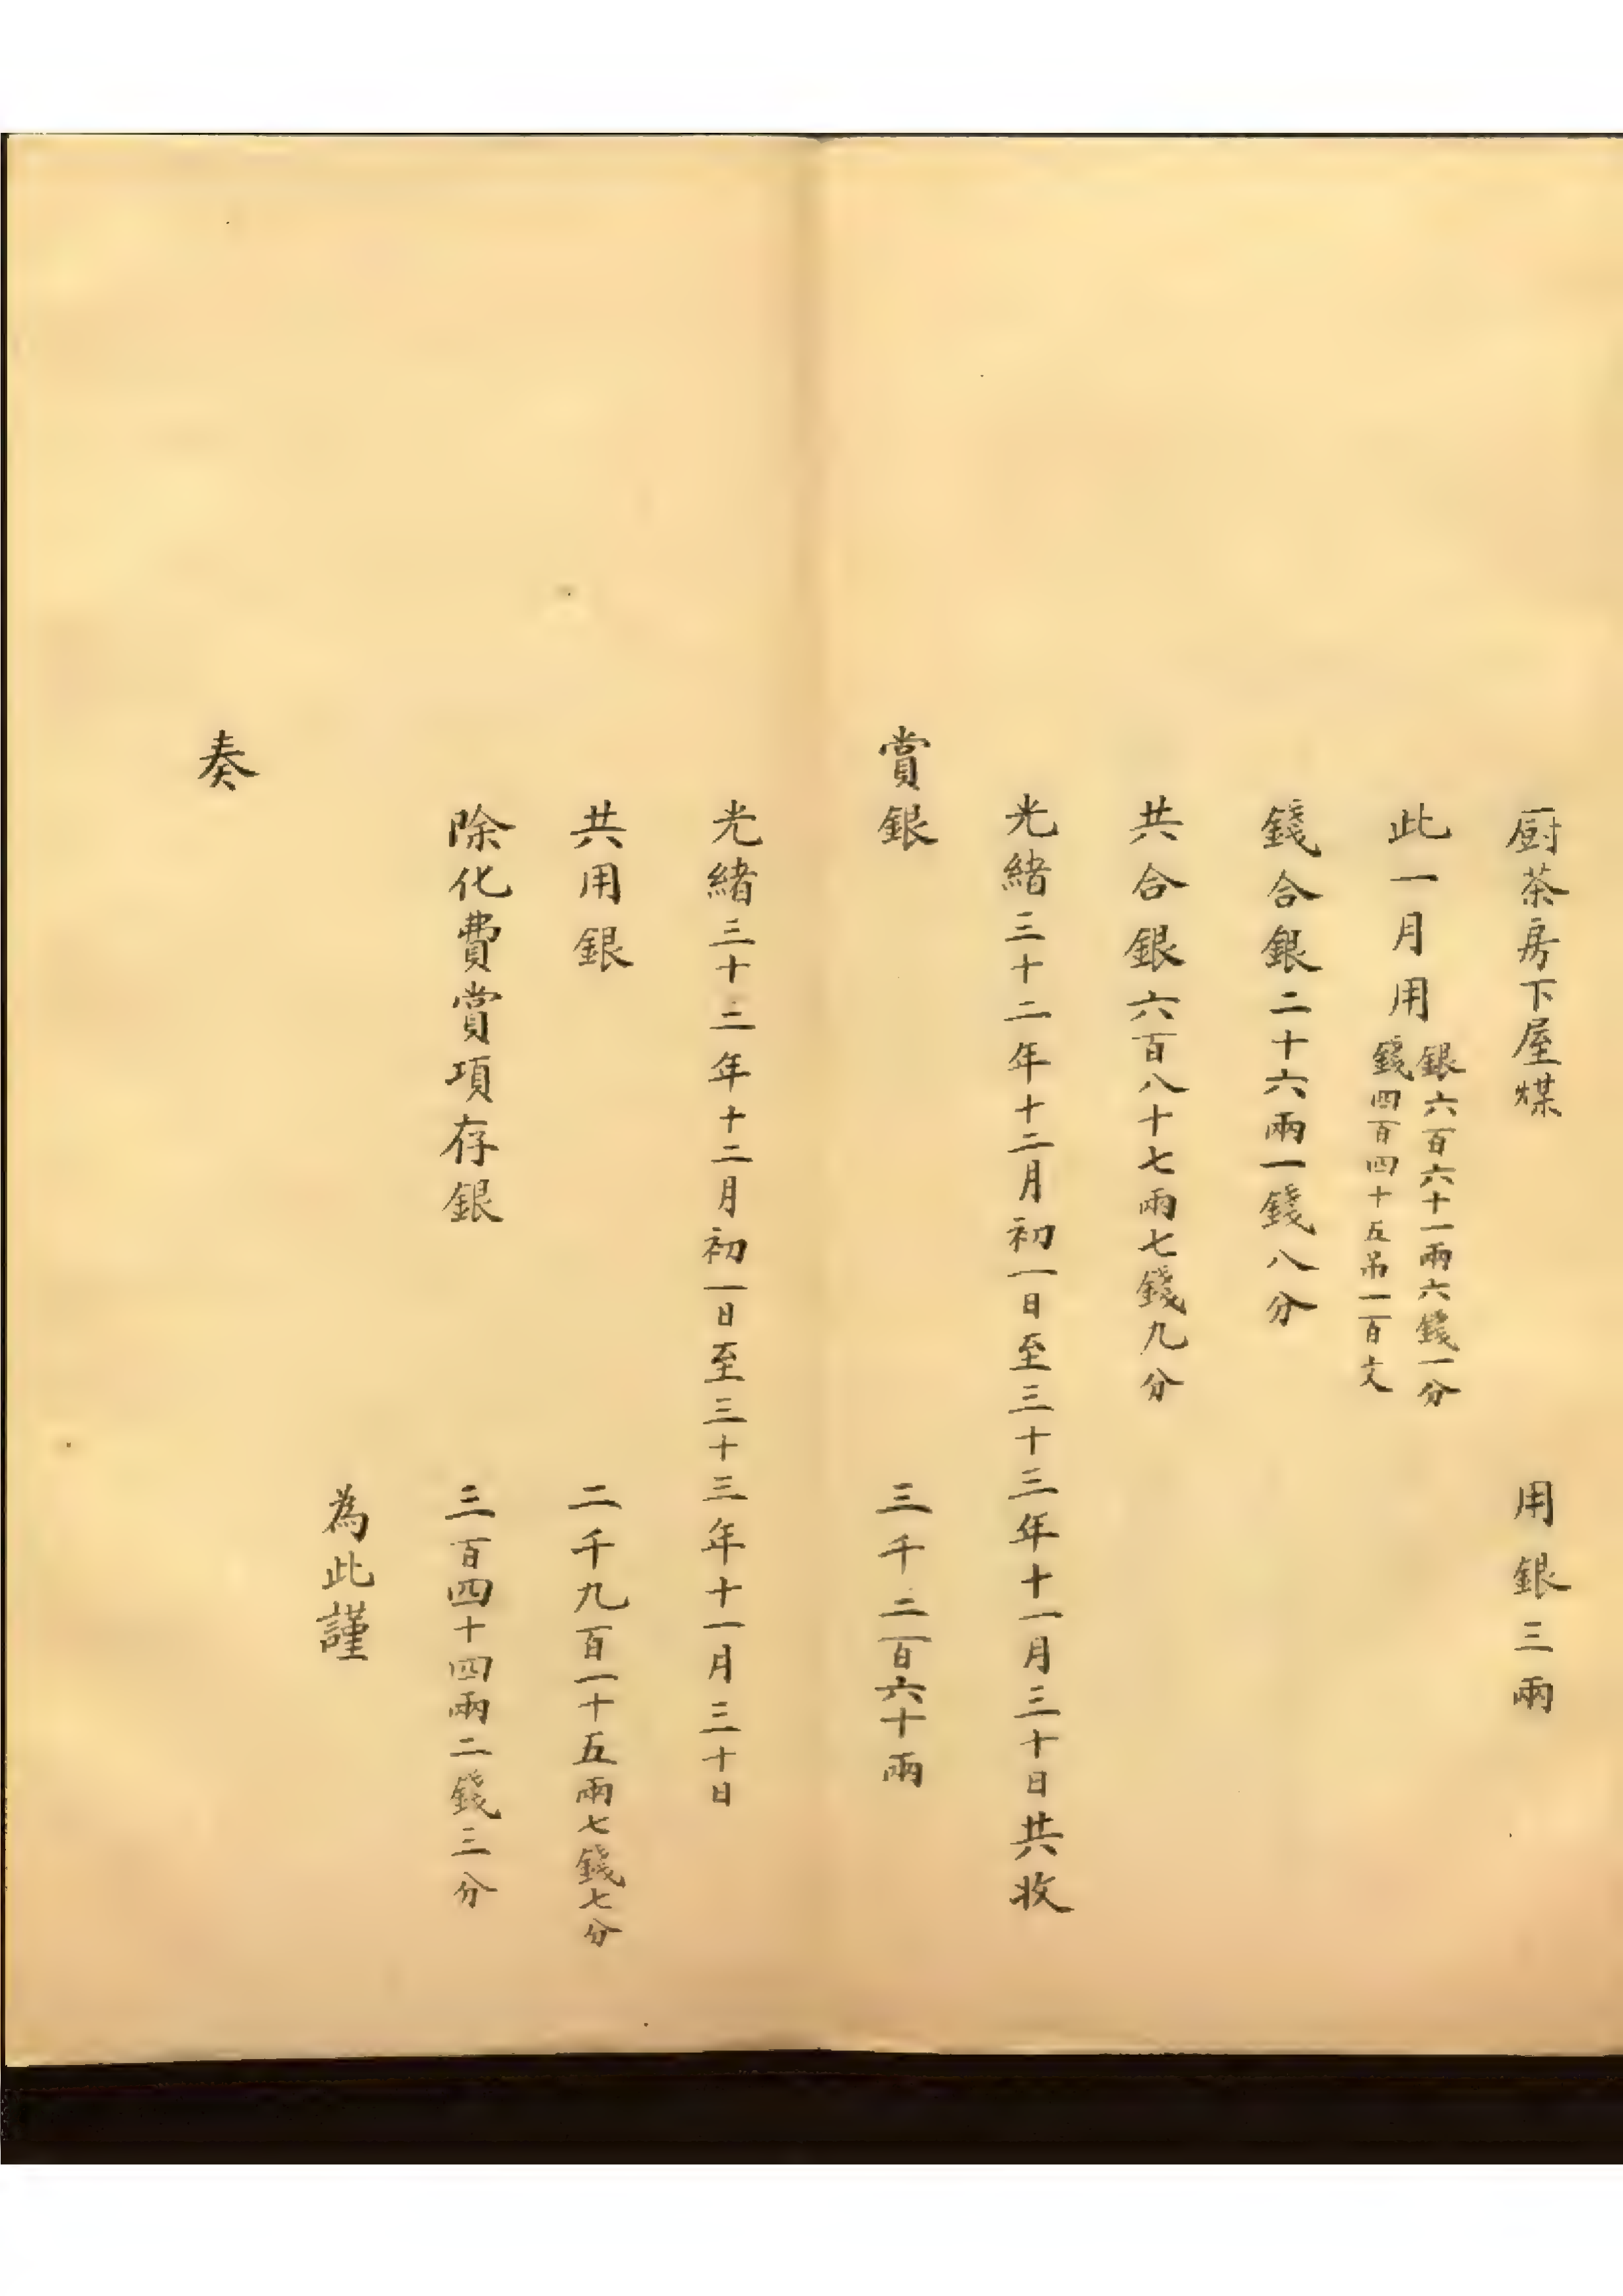 厨茶房下屋煤　用銀三兩
此一月用銀六百六十一兩六錢一分
錢四百四十五吊一百文
錢合銀二十六兩一錢八分
共合銀六百八十七兩七錢九分
光緒三十二年十二月初一日至三十三年十一月三十日共收
賞銀　三千二百六十兩
光緒三十三年十二月初一日至三十三年十一月三十日
共用銀　二千九百一十五兩七錢七分
除化費賞項存銀　三百四十四兩二錢三分
為此謹
奏